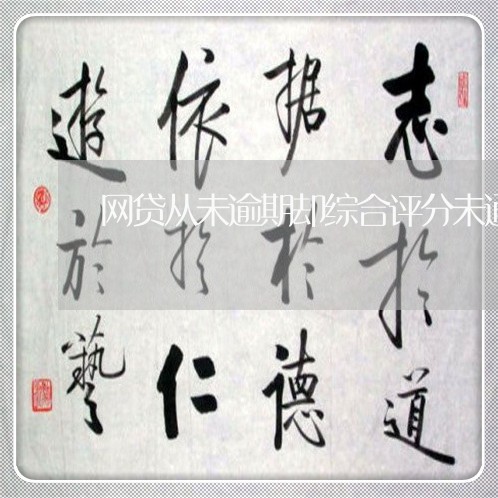 志於道
据於德
依於仁
遊於藝
网贷从未逾期却综合评分未